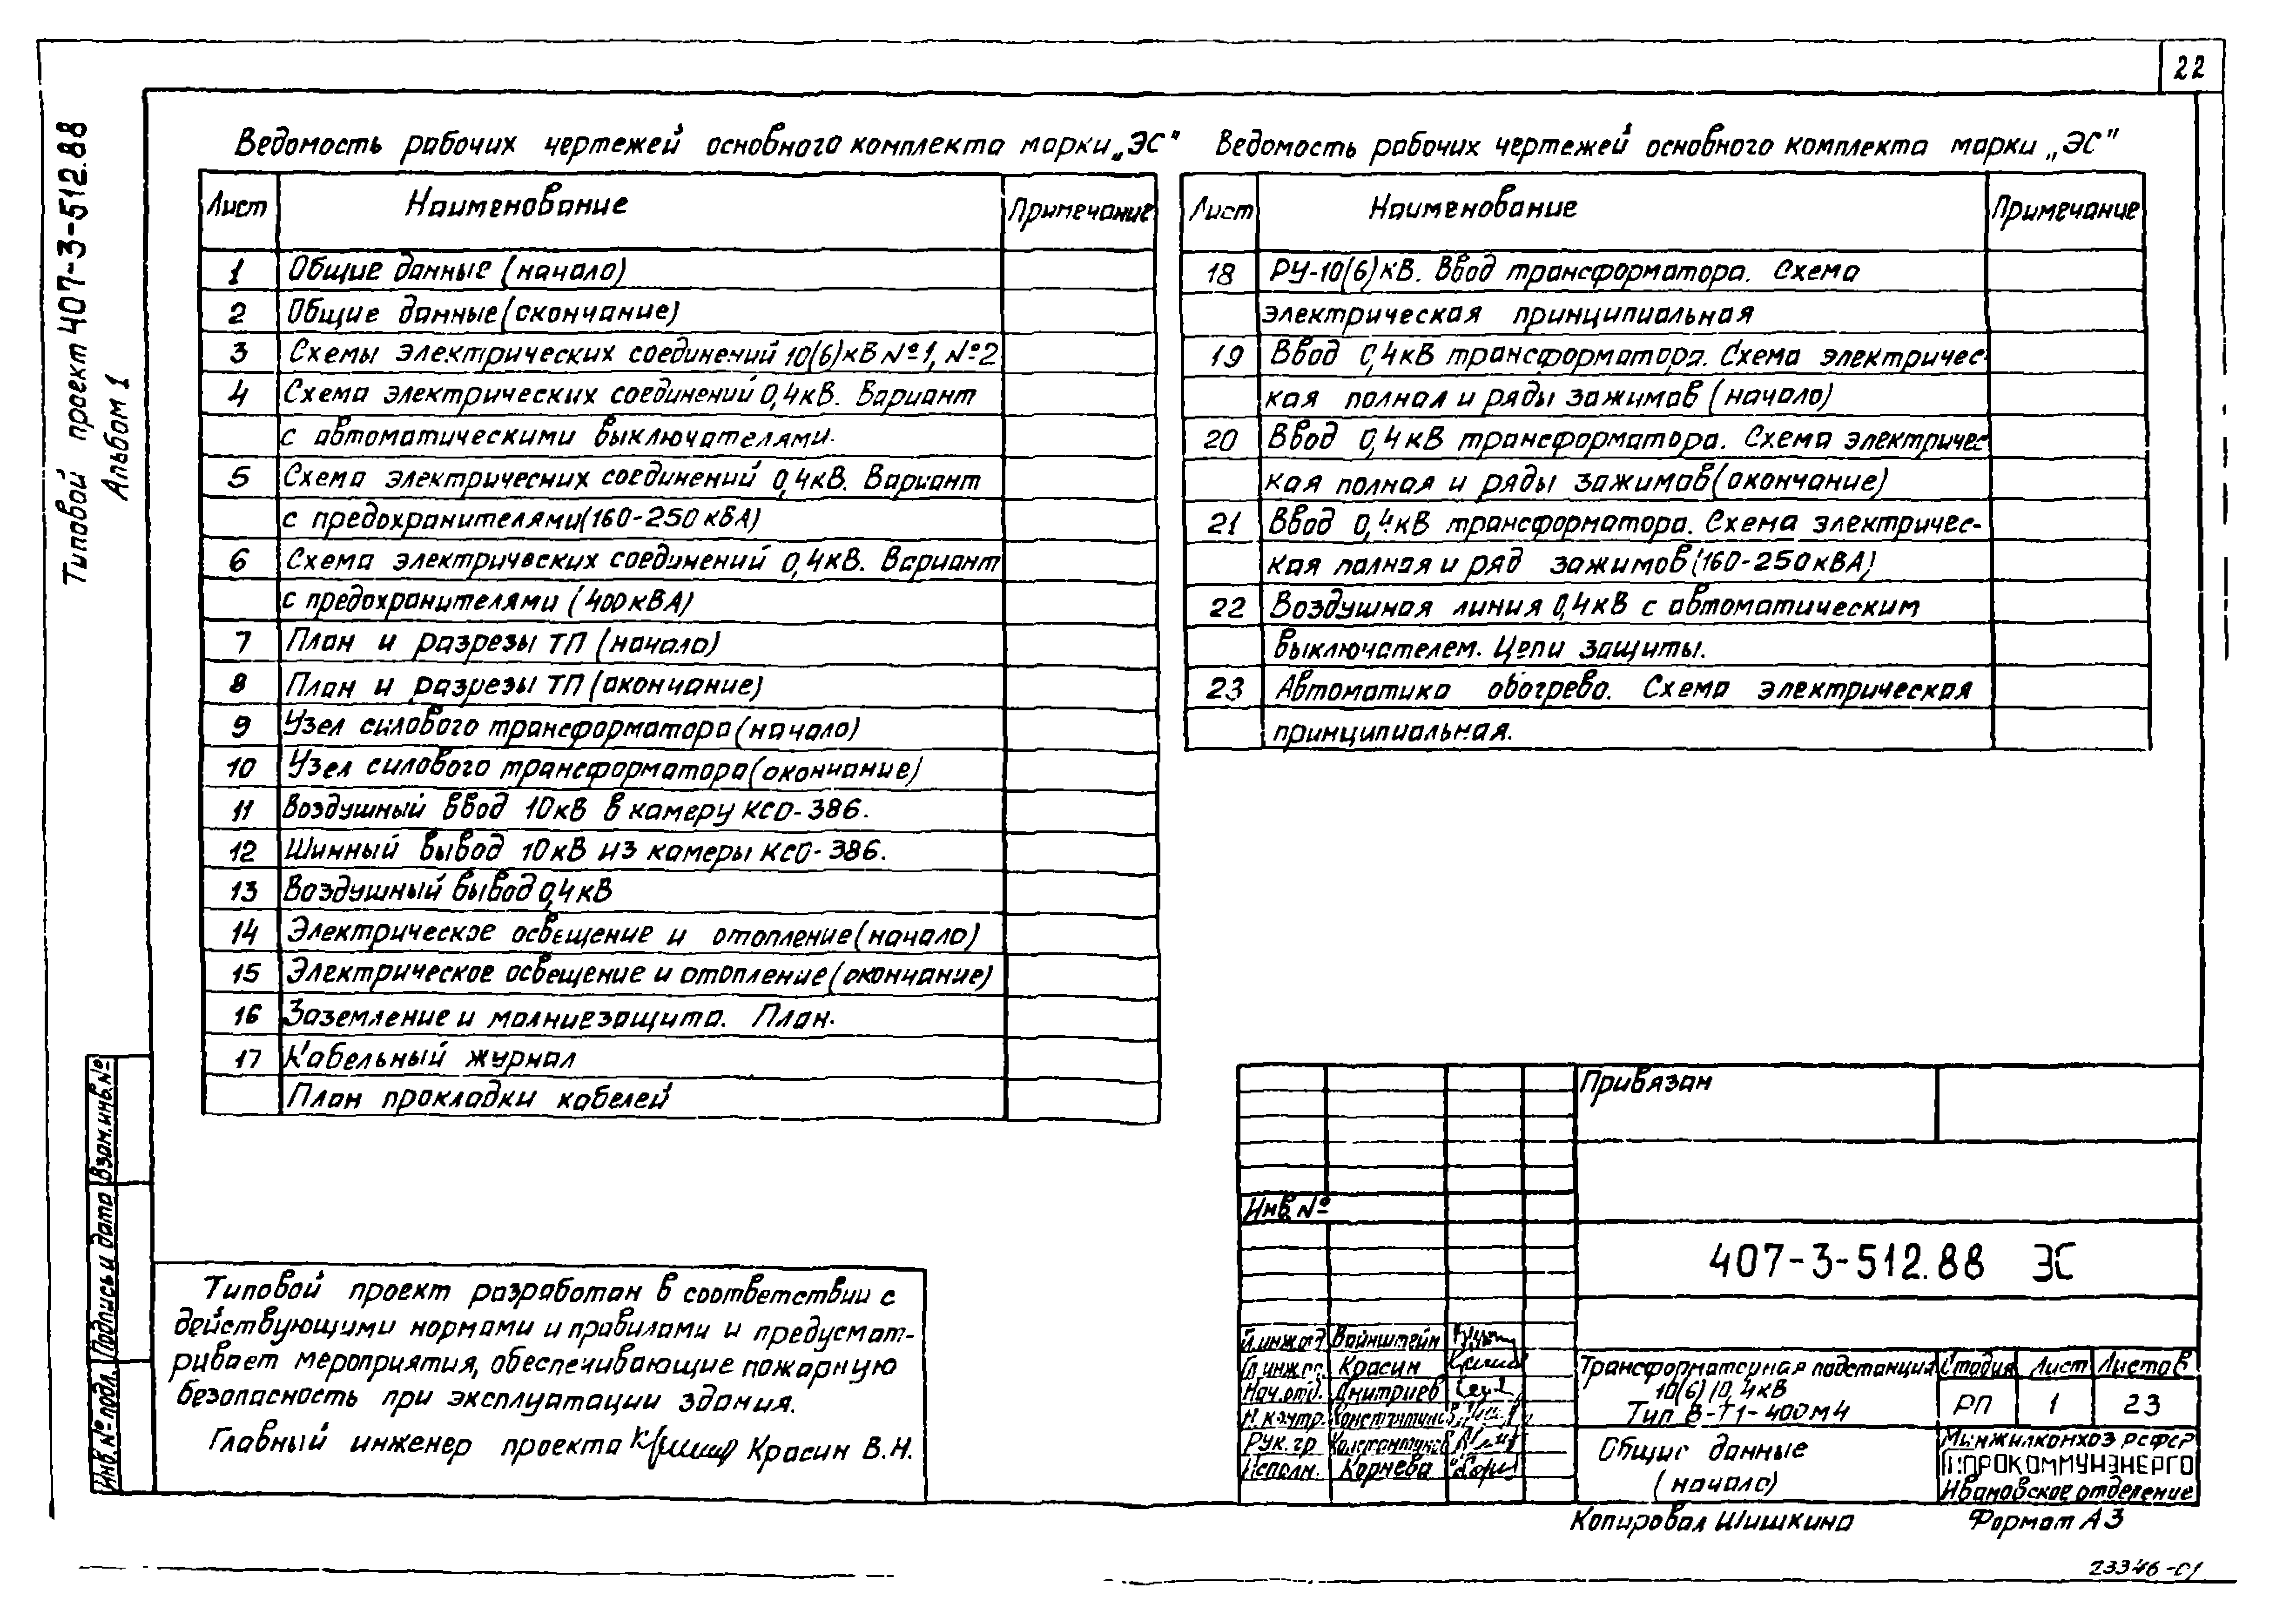 22
Типовой проект 407-3-512.88
Альбом 1
Ведомость рабочих чертежей основного комплекта марки „ЭС"
Лист Наименование Примечание
1 Общие данные (начало)
2 Общие данные (окончание)
3 Схемы электрических соединений 10(6)кВ №1, №2
4 Схема электрических соединений 0,4кВ. Вариант
с автоматическими выключателями.
5 Схема электрических соединений 0,4кВ. Вариант
с предохранителями (160-250 кВА)
6 Схема электрических соединений 0,4кВ. Вариант
с предохранителями (400кВА)
7 План и разрезы ТП (начало)
8 План и разрезы ТП (окончание)
9 Узел силового трансформатора (начало)
10 Узел силового трансформатора (окончание)
11 Воздушный ввод 10кВ в камеру КСО-386.
12 Шинный вывод 10кВ из камеры КСО-386.
13 Воздушный вывод 0,4кВ
14 Электрическое освещение и отопление (начало)
15 Электрическое освещение и отопление (окончание)
16 Заземление и молниезащита. План.
17 Кабельный журнал
План прокладки кабелей
Ведомость рабочих чертежей основного комплекта марки „ЭС"
Лист Наименование Примечание
18 РУ-10(6)кВ. Ввод трансформатора. Схема
электрическая принципиальная
19 Ввод 0,4кВ трансформатора. Схема электричес-
кая полная и ряды зажимов (начало)
20 Ввод 0,4кВ трансформатора. Схема электричес
кая полная и ряды зажимов (окончание)
21 Ввод 0,4кВ трансформатора. Схема электричес-
кая полная и ряд зажимов (160-250кВА)
22 Воздушная линия 0,4кВ с автоматическим
выключателем. Цепи защиты.
23 Автоматика обогрева. Схема электрическая
принципиальная.
Взам.инв.№
Подпись и дата
Инв.№ подл.
Типовой проект разработан в соответствии с
действующими нормами и правилами и предусмат-
ривает мероприятия, обеспечивающие пожарную
безопасность при эксплуатации здания.
Главный инженер проекта Красин В.Н.
Привязан
Инв.№
407-3-512.88 ЭС
Гл.инж.отд Вайнштейн
Гл.инж.пр. Красин
Нач.отд. Дмитриев
Н.контр.
Рук.гр.
Исполн. Корнева
Трансформаторная подстанция
10(6)/0,4кВ
Тип В-Т1-400М4
Стадия Лист Листов
РП 1 23
Общие данные
(начало)
Минжилкомхоз РСФСР
ГИПРОКОММУНЭНЕРГО
Ивановское отделение
Копировал Шишкина Формат А3
23346-01